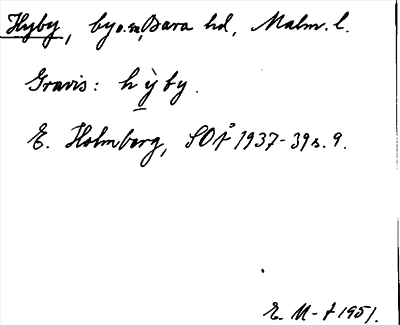 Hyby, by o. sn, Bara hd, Malm. l.
Gravis: hỳby.
E. Holmberg, SOÅ 1937-39 s. 9.
E. M-t 1951.